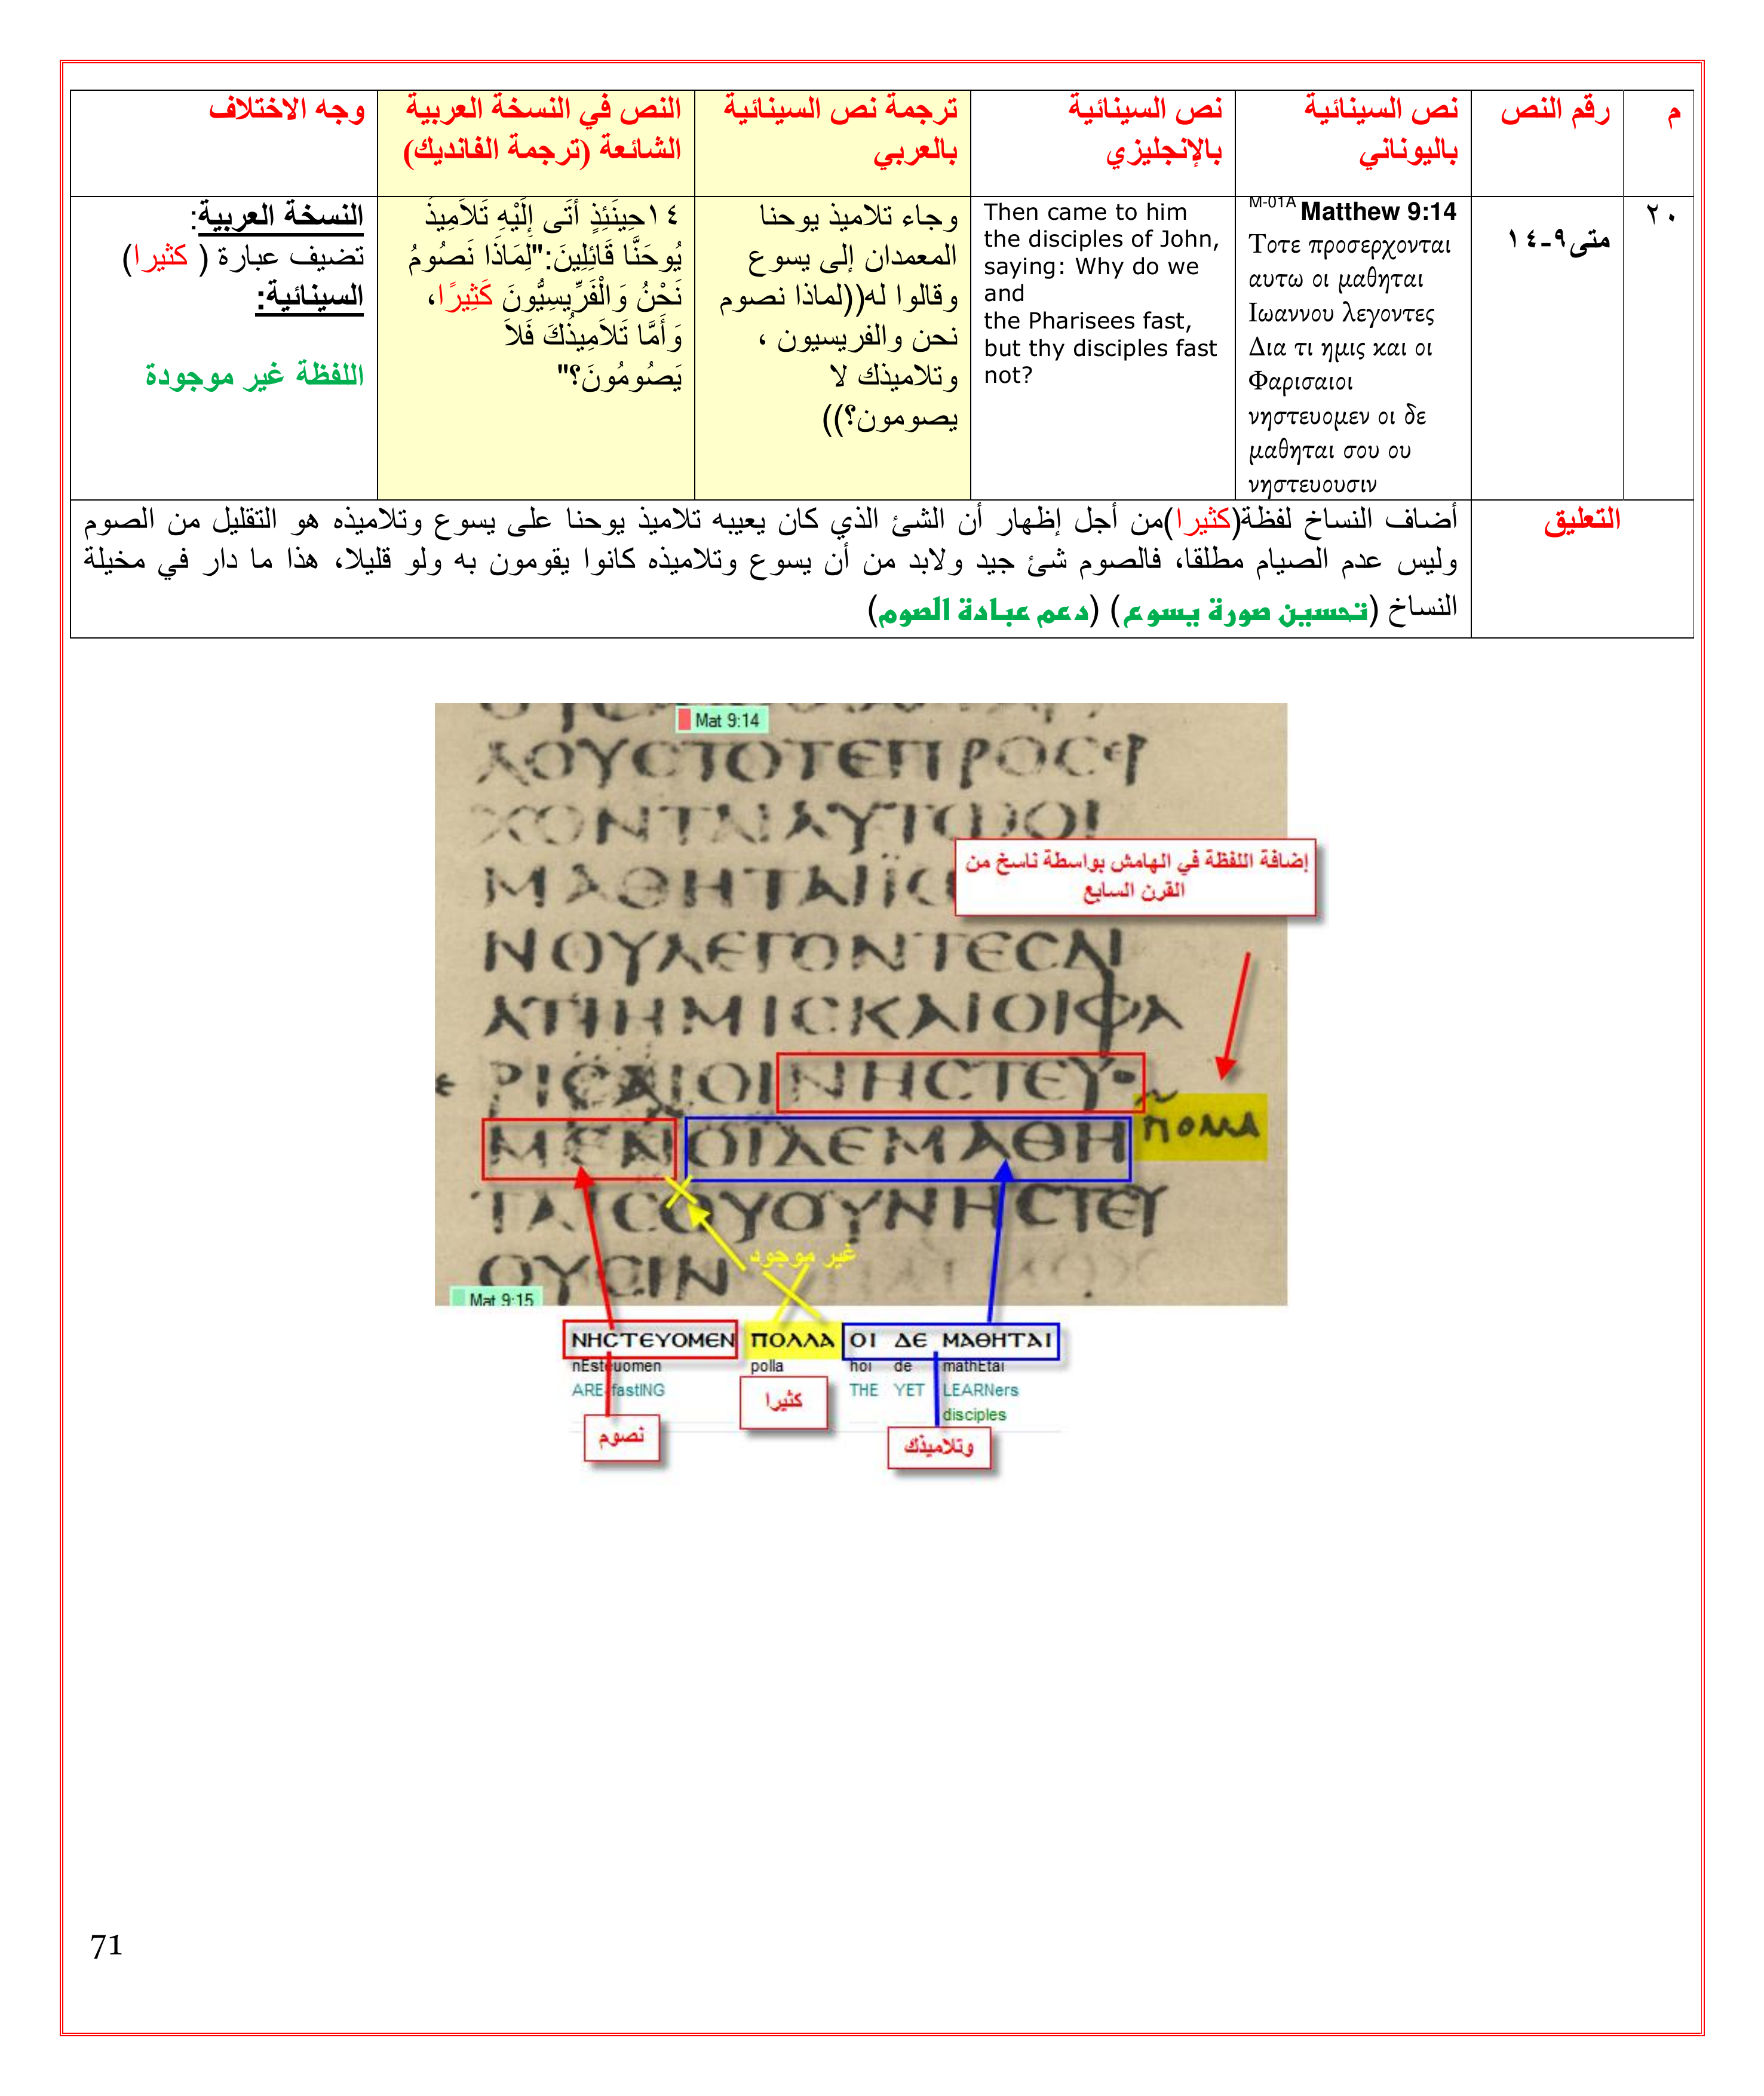 م
رقم النص
نص السينائية
باليوناني
نص السينائية
بالإنجليزي
ترجمة نص السينائية
بالعربي
النص في النسخة العربية
الشائعة (ترجمة الفانديك)
وجه الاختلاف
٢٠
متى٩-١٤
M-01A Matthew 9:14
Τοτε προσερχονται
αυτω οι μαθηται
Ιωαννου λεγοντες
Δια τι ημις και οι
Φαρισαιοι
νηστευομεν οι δε
μαθηται σου ου
νηστευουσιν
Then came to him
the disciples of John,
saying: Why do we
and
the Pharisees fast,
but thy disciples fast
not?
وجاء تلاميذ يوحنا
المعمدان إلى يسوع
وقالوا له((لماذا نصوم
نحن والفريسيون ،
وتلاميذك لا
يصومون؟))
١٤حِينَئِذٍ أَتَى إِلَيْهِ تَلاَمِيذُ
يُوحَنَّا قَائِلِينَ:"لِمَاذَا نَصُومُ
نَحْنُ وَالْفَرِّيسِيُّونَ كَثِيرًا،
وَأَمَّا تَلاَمِيذُكَ فَلاَ
يَصُومُونَ؟"
النسخة العربية:
تضيف عبارة ( كثيرا)
السينائية:
اللفظة غير موجودة
التعليق
أضاف النساخ لفظة(كثيرا)من أجل إظهار أن الشئ الذي كان يعيبه تلاميذ يوحنا على يسوع وتلاميذه هو التقليل من الصوم
وليس عدم الصيام مطلقا، فالصوم شئ جيد ولابد من أن يسوع وتلاميذه كانوا يقومون به ولو قليلا، هذا ما دار في مخيلة
النساخ (تحسين صورة يسوع) (دعم عبادة الصوم)
Mat 9:14
ΧΟΥCΤΟΤΕΠΡΟCΕΡ
ΧΟΝΤΑΙΑΥΤΩΟΙ
إضافة اللفظة في الهامش بواسطة ناسخ من
القرن السابع
ΜΑΘΗΤΑΙΪΩ
ΝΟΥΛΕΓΟΝΤΕCΔΙ
ΑΤΙΗΜΙCΚΑΙΟΙΦΑ
ΡΙCΑΙΟΙΝΗCΤΕΥ
ΜΕΝΟΙΔΕΜΑΘΗ
ΠΟΛΛΑ
ΤΑΙCΟΥΟΥΝΗCΤΕΥ
غير موجود
ΟΥCΙΝ
Mat 9:15
ΝΗCΤΕΥΟΜΕΝ ΠΟΛΛΑ ΟΙ ΔΕ ΜΑΘΗΤΑΙ
nEsteuomen polla hoi de mathEtai
ARE-fastING THE YET LEARNers
disciples
كثيرا
نصوم
وتلاميذك
71